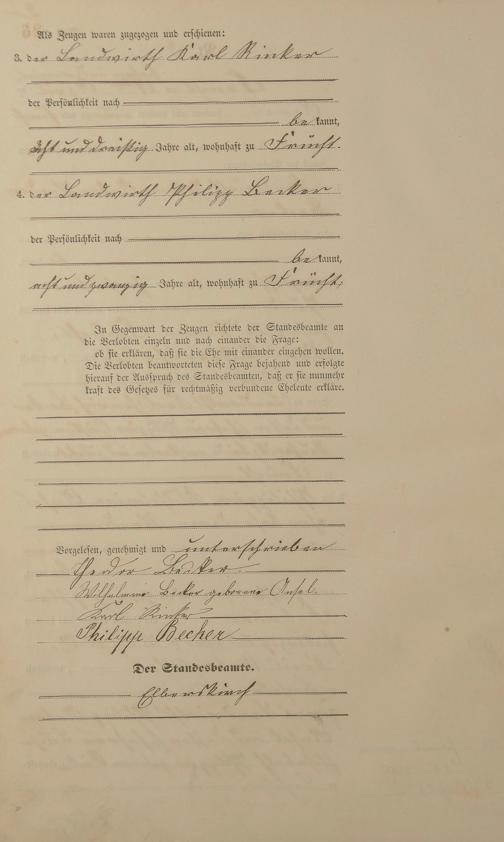 Als Zeugen waren zugezogen und erschienen:
3. der Landwirth Karl Rinker
der Persönlichkeit nach
bekannt,
acht und dreißig Jahre alt, wohnhaft zu Frücht.
4. der Landwirth Philipp Becker
der Persönlichkeit nach
bekannt,
acht und zwanzig Jahre alt, wohnhaft zu Frücht,
In Gegenwart der Zeugen richtete der Standesbeamte an
die Verlobten einzeln und nach einander die Frage:
ob sie erklären, daß sie die Ehe mit einander eingehen wollen.
Die Verlobten beantworteten diese Frage bejahend und erfolgte
hierauf der Ausspruch des Standesbeamten, daß er sie nunmehr
kraft des Gesetzes für rechtmäßig verbundene Eheleute erkläre.
Vorgelesen, genehmigt und unterschrieben
Becker
Wilhelmine Becker geborene
Karl Rinker
Philipp Becker
Der Standesbeamte.
Elberskirch